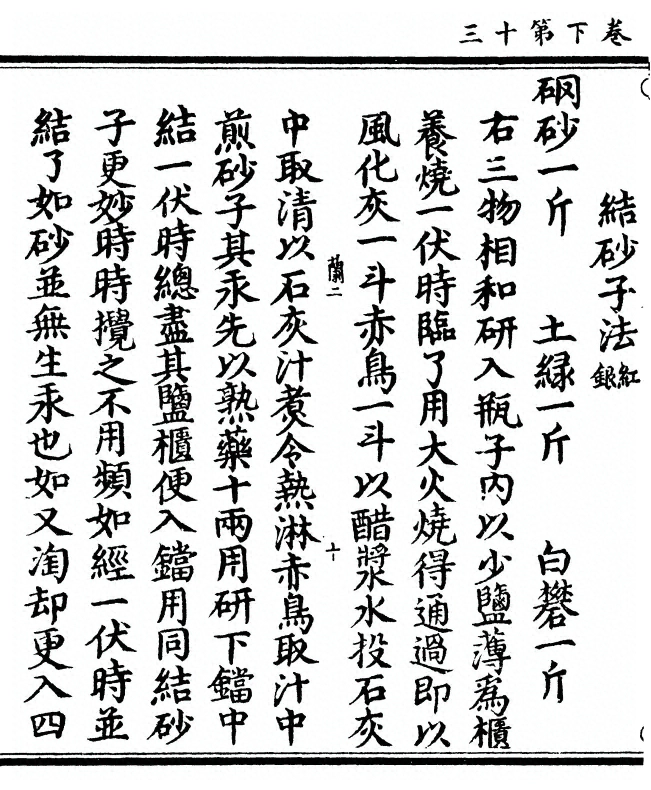 卷下第十三
結砂子法紅銀
碙砂一斤 土緑一斤 白礬一斤
右三物相和研入瓶子内以少鹽薄爲櫃
養燒一伏時臨了用大火燒得通過即以
風化灰一斗赤鳥一斗以醋漿水投石灰
蘭二 十
中取清以石灰汁煑令熱淋赤鳥取汁中
煎砂子其汞先以熟藥十兩用研下鐺中
結一伏時總盡其鹽櫃便入鐺用同結砂
子更妙時時攪之不用頻如經一伏時並
結了如砂並無生汞也如又淘却更入四